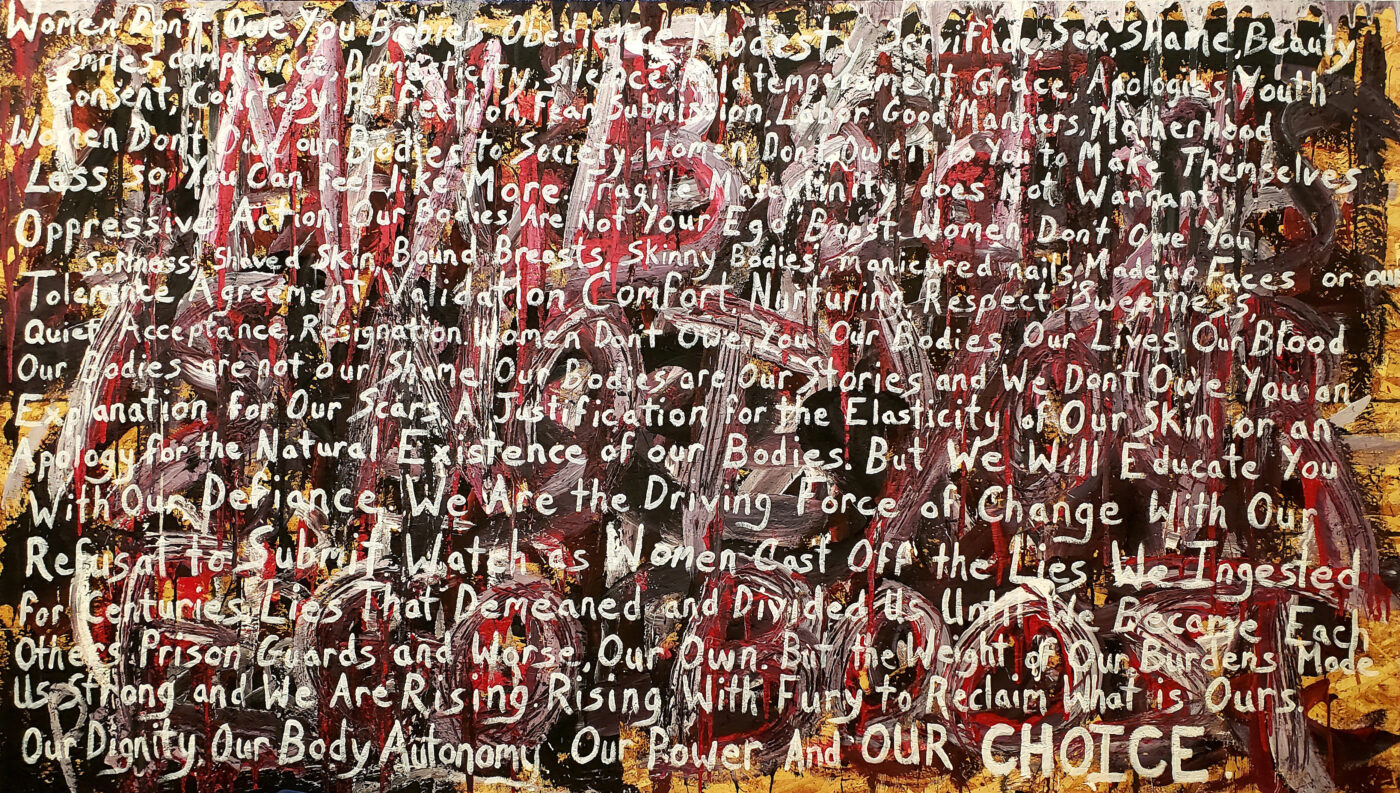 Women Don't Owe You Babies Obedience Modesty Servitude, Sex, Shame, Beauty
Smiles, compliance, Domesticity, silence, Mild temperament Grace, Apologies, Youth
Consent, Courtesy, Perfection, Fear Submission, Labor, Good, Manners, Motherhood
Women Don't Owe our Bodies to Society. Women Don't Owe it to You to Make Themselves
Less so You Can feel like More. Fragile Masculinity does Not Warrant
Oppressive Action. Our Bodies Are Not Your Ego Boost. Women Don't Owe You
Softness, Shaved Skin, Bound Breasts, Skinny Bodies, manicured nails, Madeup Faces or our
Tolerance, Agreement, Validation, Comfort, Nurturing, Respect, Sweetness,
Quiet Acceptance, Resignation. Women Don't Owe You Our Bodies, Our Lives, Our Blood
Our Bodies are not our Shame. Our Bodies are Our Stories and We Don't Owe You an
Explanation for Our Scars, A Justification for the Elasticity of Our Skin or an
Apology for the Natural Existence of our Bodies. But We Will Educate You
With Our Defiance. We Are the Driving Force of Change With Our
Refusal to Submit. Watch as Women Cast Off the Lies We Ingested
for Centuries, Lies That Demeaned and Divided Us Until We Became Each
Others Prison Guards and Worse, Our Own. But the Weight of Our Burdens Made
Us Strong and We Are Rising. Rising With Fury to Reclaim What is Ours.
Our Dignity, Our Body Autonomy Our Power And OUR CHOICE.